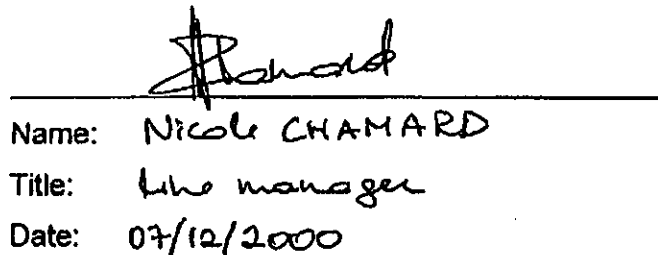 Chamard
Name: Nicole CHAMARD
Title: Line manager
Date: 07/12/2000